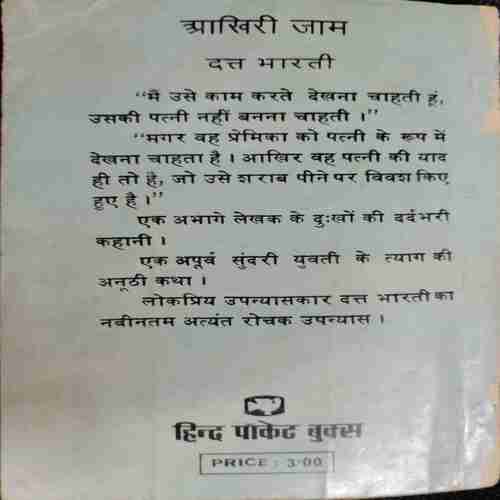 आखिरी जाम
दत्त भारती
“मैं उसे काम करते देखना चाहती हूं,
उसकी पत्नी नहीं बनना चाहती ।”
“मगर वह प्रेमिका को पत्नी के रूप में
देखना चाहता है । आखिर वह पत्नी की याद
ही तो है, जो उसे शराब पीने पर विवश किए
हुए है ।”
एक अभागे लेखक के दुःखों की दर्दभरी
कहानी ।
एक अपूर्व सुंदरी युवती के त्याग की
अनूठी कथा ।
लोकप्रिय उपन्यासकार दत्त भारती का
नवीनतम अत्यंत रोचक उपन्यास ।
हिन्द पाकेट बुक्स
PRICE : 3·00